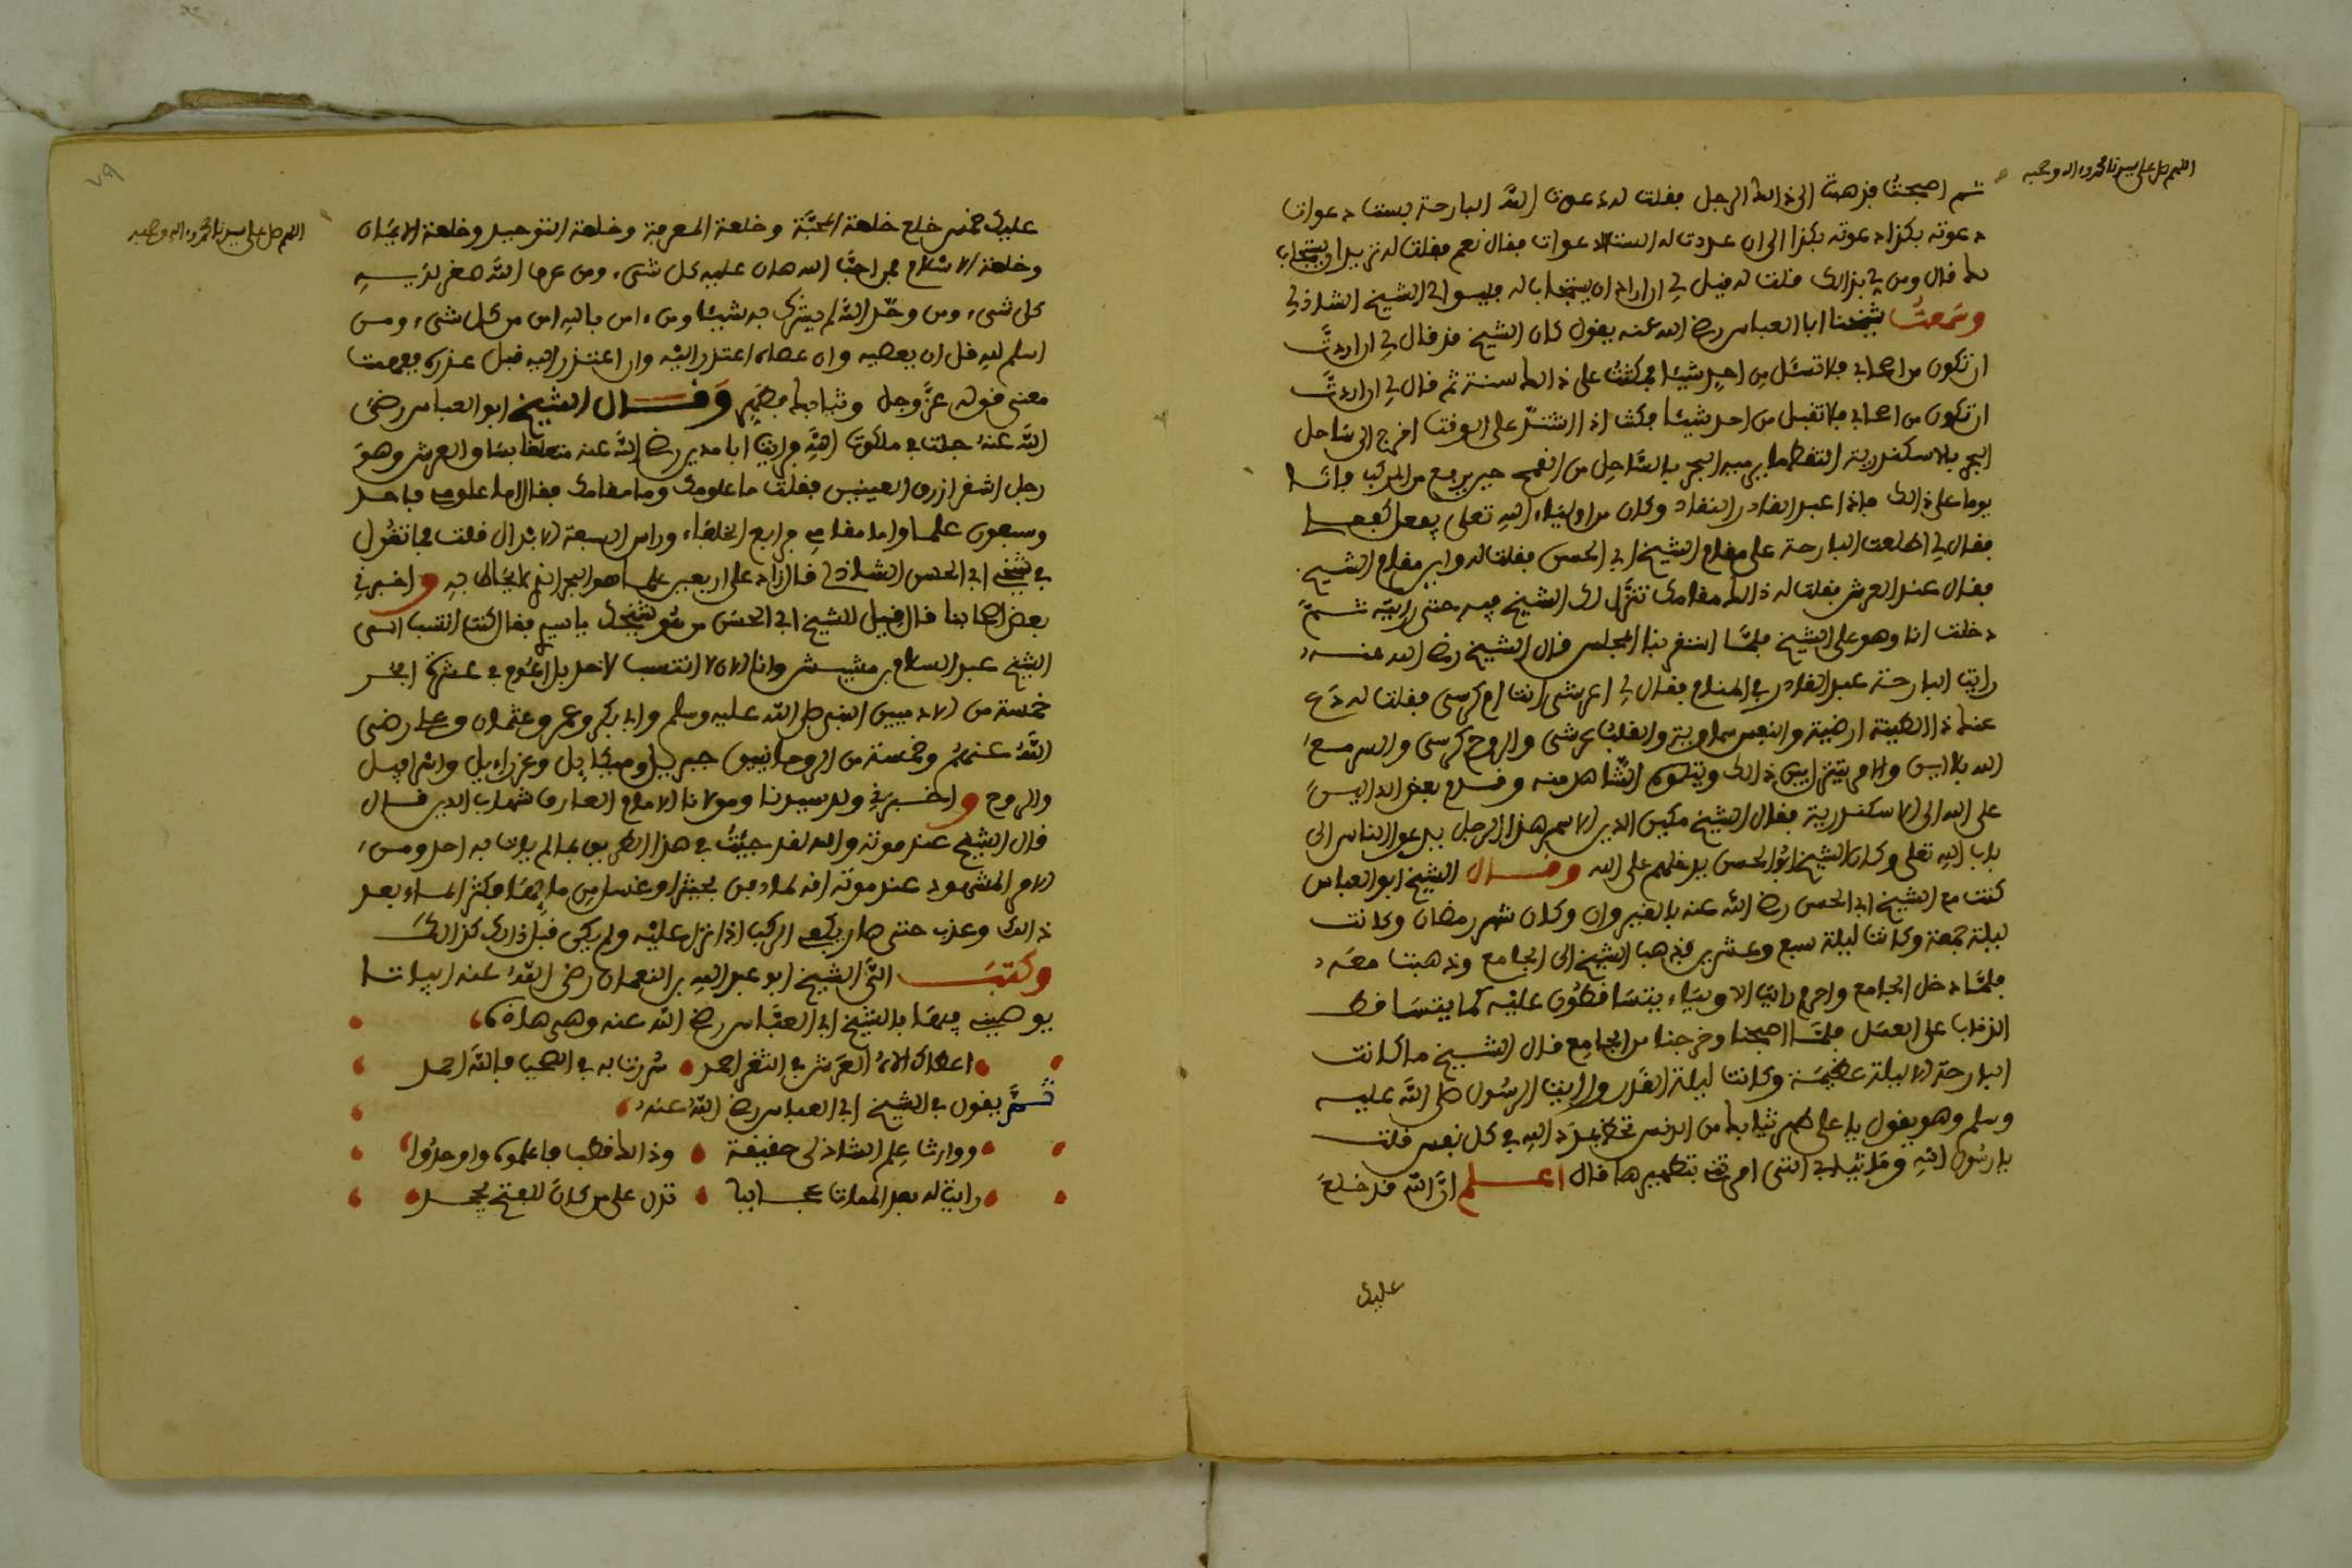 اللهم صل على سيدنا محمد وءاله وصحبه
ثم اصبحت فذهبت الى ذالك الرجل فقلت له دعوت الله البارحة بست دعوات
دعوته بكذا ودعوته بكذا الى ان عددت له الست الدعوات فقال نعم فقلت له تريد ان يستجاب
لك قال ومن لي بذالك فقلت له قيل لي ان اراد ان يستجاب له فليسر الى الشيخ الشاذلي
وسمعت شيخنا ابا العباس رضي الله عنه يقول كان الشيخ قد قال لي ان اردت
ان تكون من اصحابي فلا تسئل من احد شيئا فمكثت على ذالك سنة ثم قال لي ان اردت
ان تكون من اصحابي فلا تقبل من احد شيئا فكنت اذا اشتد على الوقت اخرج الى ساحل
البحر بالاسكندرية التقط ما يرميه البحر بالساحل من القمح حين يرفع من المركب فانا
يوما على ذالك فاذا عبد القادر النقاد وكان من اولياء الله تعلى يفعل كفعل
فقال لي اطلعت البارحة على مقام الشيخ ابي الحسن فقلت له واين مقام الشيخ
فقال عند العرش فقلت له ذالك مقامك تنزل لك الشيخ فيه حتى رايته ثم
دخلت انا وهو على الشيخ فلما استقر بنا المجلس قال الشيخ رضي الله عنه
رايت البارحة عبد القادر في المنام فقال لي اعرشي انت ام كرسي فقلت له دع
عنك ذا الطينة ارضية والنفس سماوية والقلب عرشي والروح كرسي والسر مع
الله بلا اين والامر يتنزل بين ذالك ويتلوه الشاهد منه وقدم بعض الدالين
على الله الى الاسكندرية فقال الشيخ مكين الدين الاسمر هذا الرجل يدعو الناس الى
باب الله تعلى وكان الشيخ ابو الحسن يدخلهم على الله وقال الشيخ ابو العباس
كنت مع الشيخ ابي الحسن رضي الله عنه بالقيروان وكان شهر رمضان وكانت
ليلة جمعة وكانت ليلة سبع وعشرين فذهب الشيخ الى الجامع وذهبت معه
فلما دخل الجامع واحرم رايت الاولياء يتساقطون عليه كما يتساقط
الذباب على العسل فلما اصبحنا وخرجنا من الجامع قال الشيخ ما كانت
البارحة الا ليلة عظيمة وكانت ليلة القدر ورايت الرسول صلى الله عليه
وسلم وهو يقول يا على طهر ثيابك من الدنس تحظ بمدد الله في كل نفس قلت
يا رسول الله وما ثيابي التي امرت بتطهيرها قال اعلم ان الله قد خلع
عليك
٧٩
اللهم صل على سيدنا محمد وءاله وصحبه
عليك خمس خلع خلعة المحبة وخلعة المعرفة وخلعة التوحيد وخلعة الايمان
وخلعة الاسلام فمن احب الله هان عليه كل شيء ومن عرف الله صغر لديه
كل شيء ومن وحد الله لم يشرك به شيئا ومن ءامن بالله امن من كل شيء ومن
اسلم لله قل ان يعصيه وان عصاه اعتذر اليه وان اعتذر اليه قبل عذره ففهمت
معنى قوله عز وجل وثيابك فطهر وقال الشيخ ابو العباس رضي
الله عنه جلت في ملكوت الله فرايت ابا مدين رضي الله عنه متعلقا بساق العرش وهو
رجل اشقر ازرق العينين فقلت ما علومك وما مقامك فقال اما علومي فاحد
وسبعون علما واما مقامي فرابع الخلفاء وراس السبعة الابدال قلت فما تقول
في شيخي ابي الحسن الشاذلي قال زاد على اربعين علما هو البحر الذي لا يحاط به واخبرني
بعض اصحابنا قال قيل للشيخ ابي الحسن من هو شيخك يا سيدي فقال كنت انتسب الى
الشيخ عبد السلام بن مشيش وانا الان لا انتسب لاحد بل اعوم في عشرة ابحر
خمسة من الادميين النبي صلى الله عليه وسلم وابي بكر وعمر وعثمان وعلي رضي
الله عنهم وخمسة من الروحانيين جبريل وميكاييل وعزراييل واسرافيل
والروح واخبرني ولد سيدنا ومولانا الامام العارف شهاب الدين قال
قال الشيخ عند موته والله لقد جيت في هذا الطريق بما لم يات به احد ومن
الامر المشهود عند موته انه لما دفن بحميثرا وغسل من مايها فكثر الماء بعد
ذالك وعذب حتى صار يكفي الركب اذا نزل عليه ولم يكن قبل ذالك كذالك
وكتب الى الشيخ ابو عبد الله بن النعمان رضي الله عنه ابياتا
يوصيني فيها بالشيخ ابي العباس رضي الله عنه وهي هاذه
اعطاك الاه العرش في الثغر احمد سررت به في الصحب فالله احمد
ثم يقول في الشيخ ابي العباس رضي الله عنه
ووارث علم الشاذلي حقيقة وذالك قطب فاعلموه واوحدوا
رايت له بعد الممات عجايبا تدل على من كان للفتح يجحد